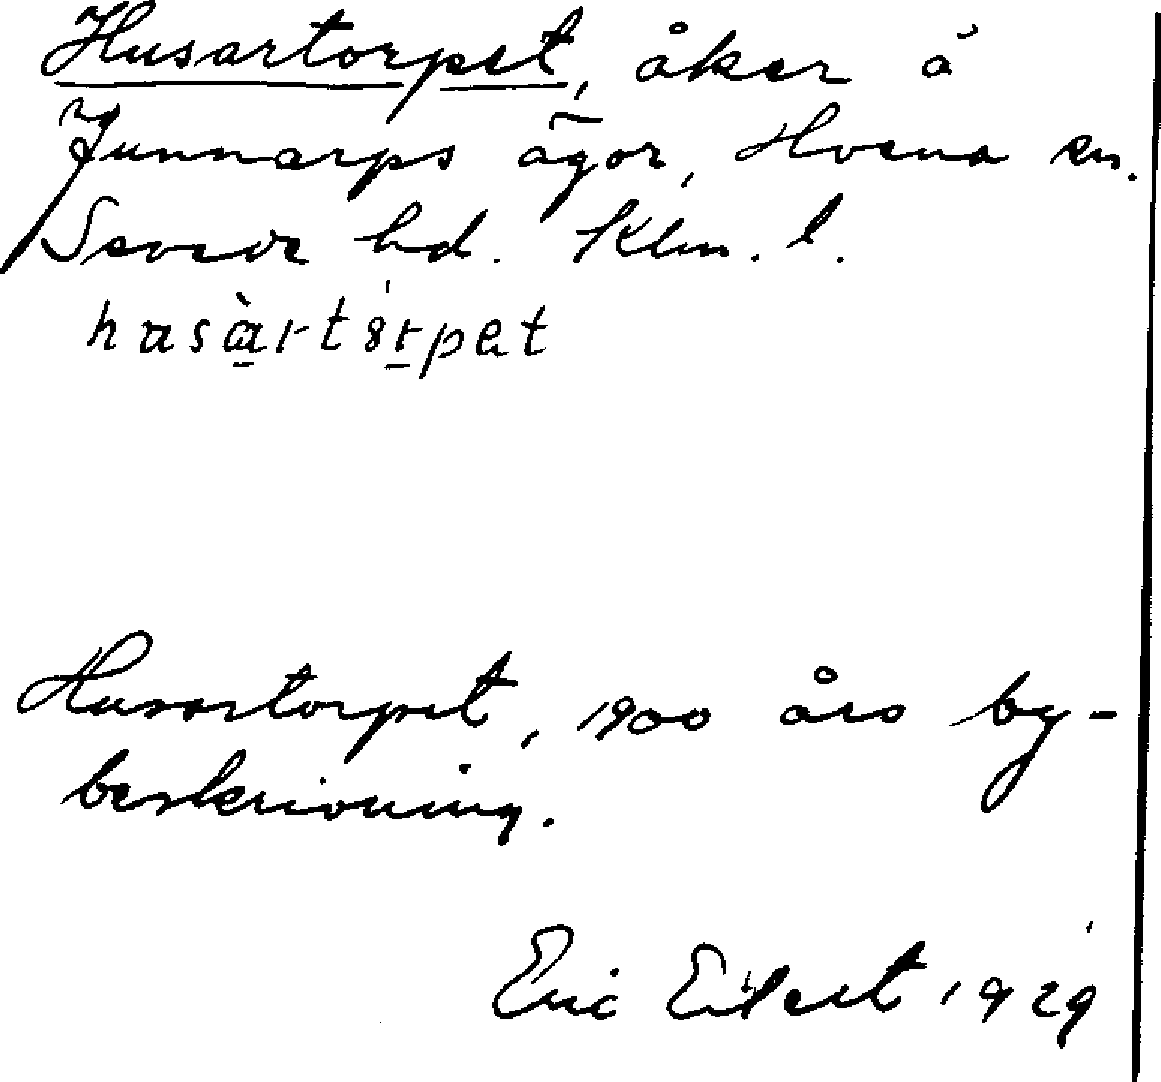 Husartorpet, åker å
Junnarps ägor, Hvena sn.
Sevede hd. Klm. l.
husàrtórpet
Husartorpet, 1900 års by-
beskrivning.
Eric Eilert 1929